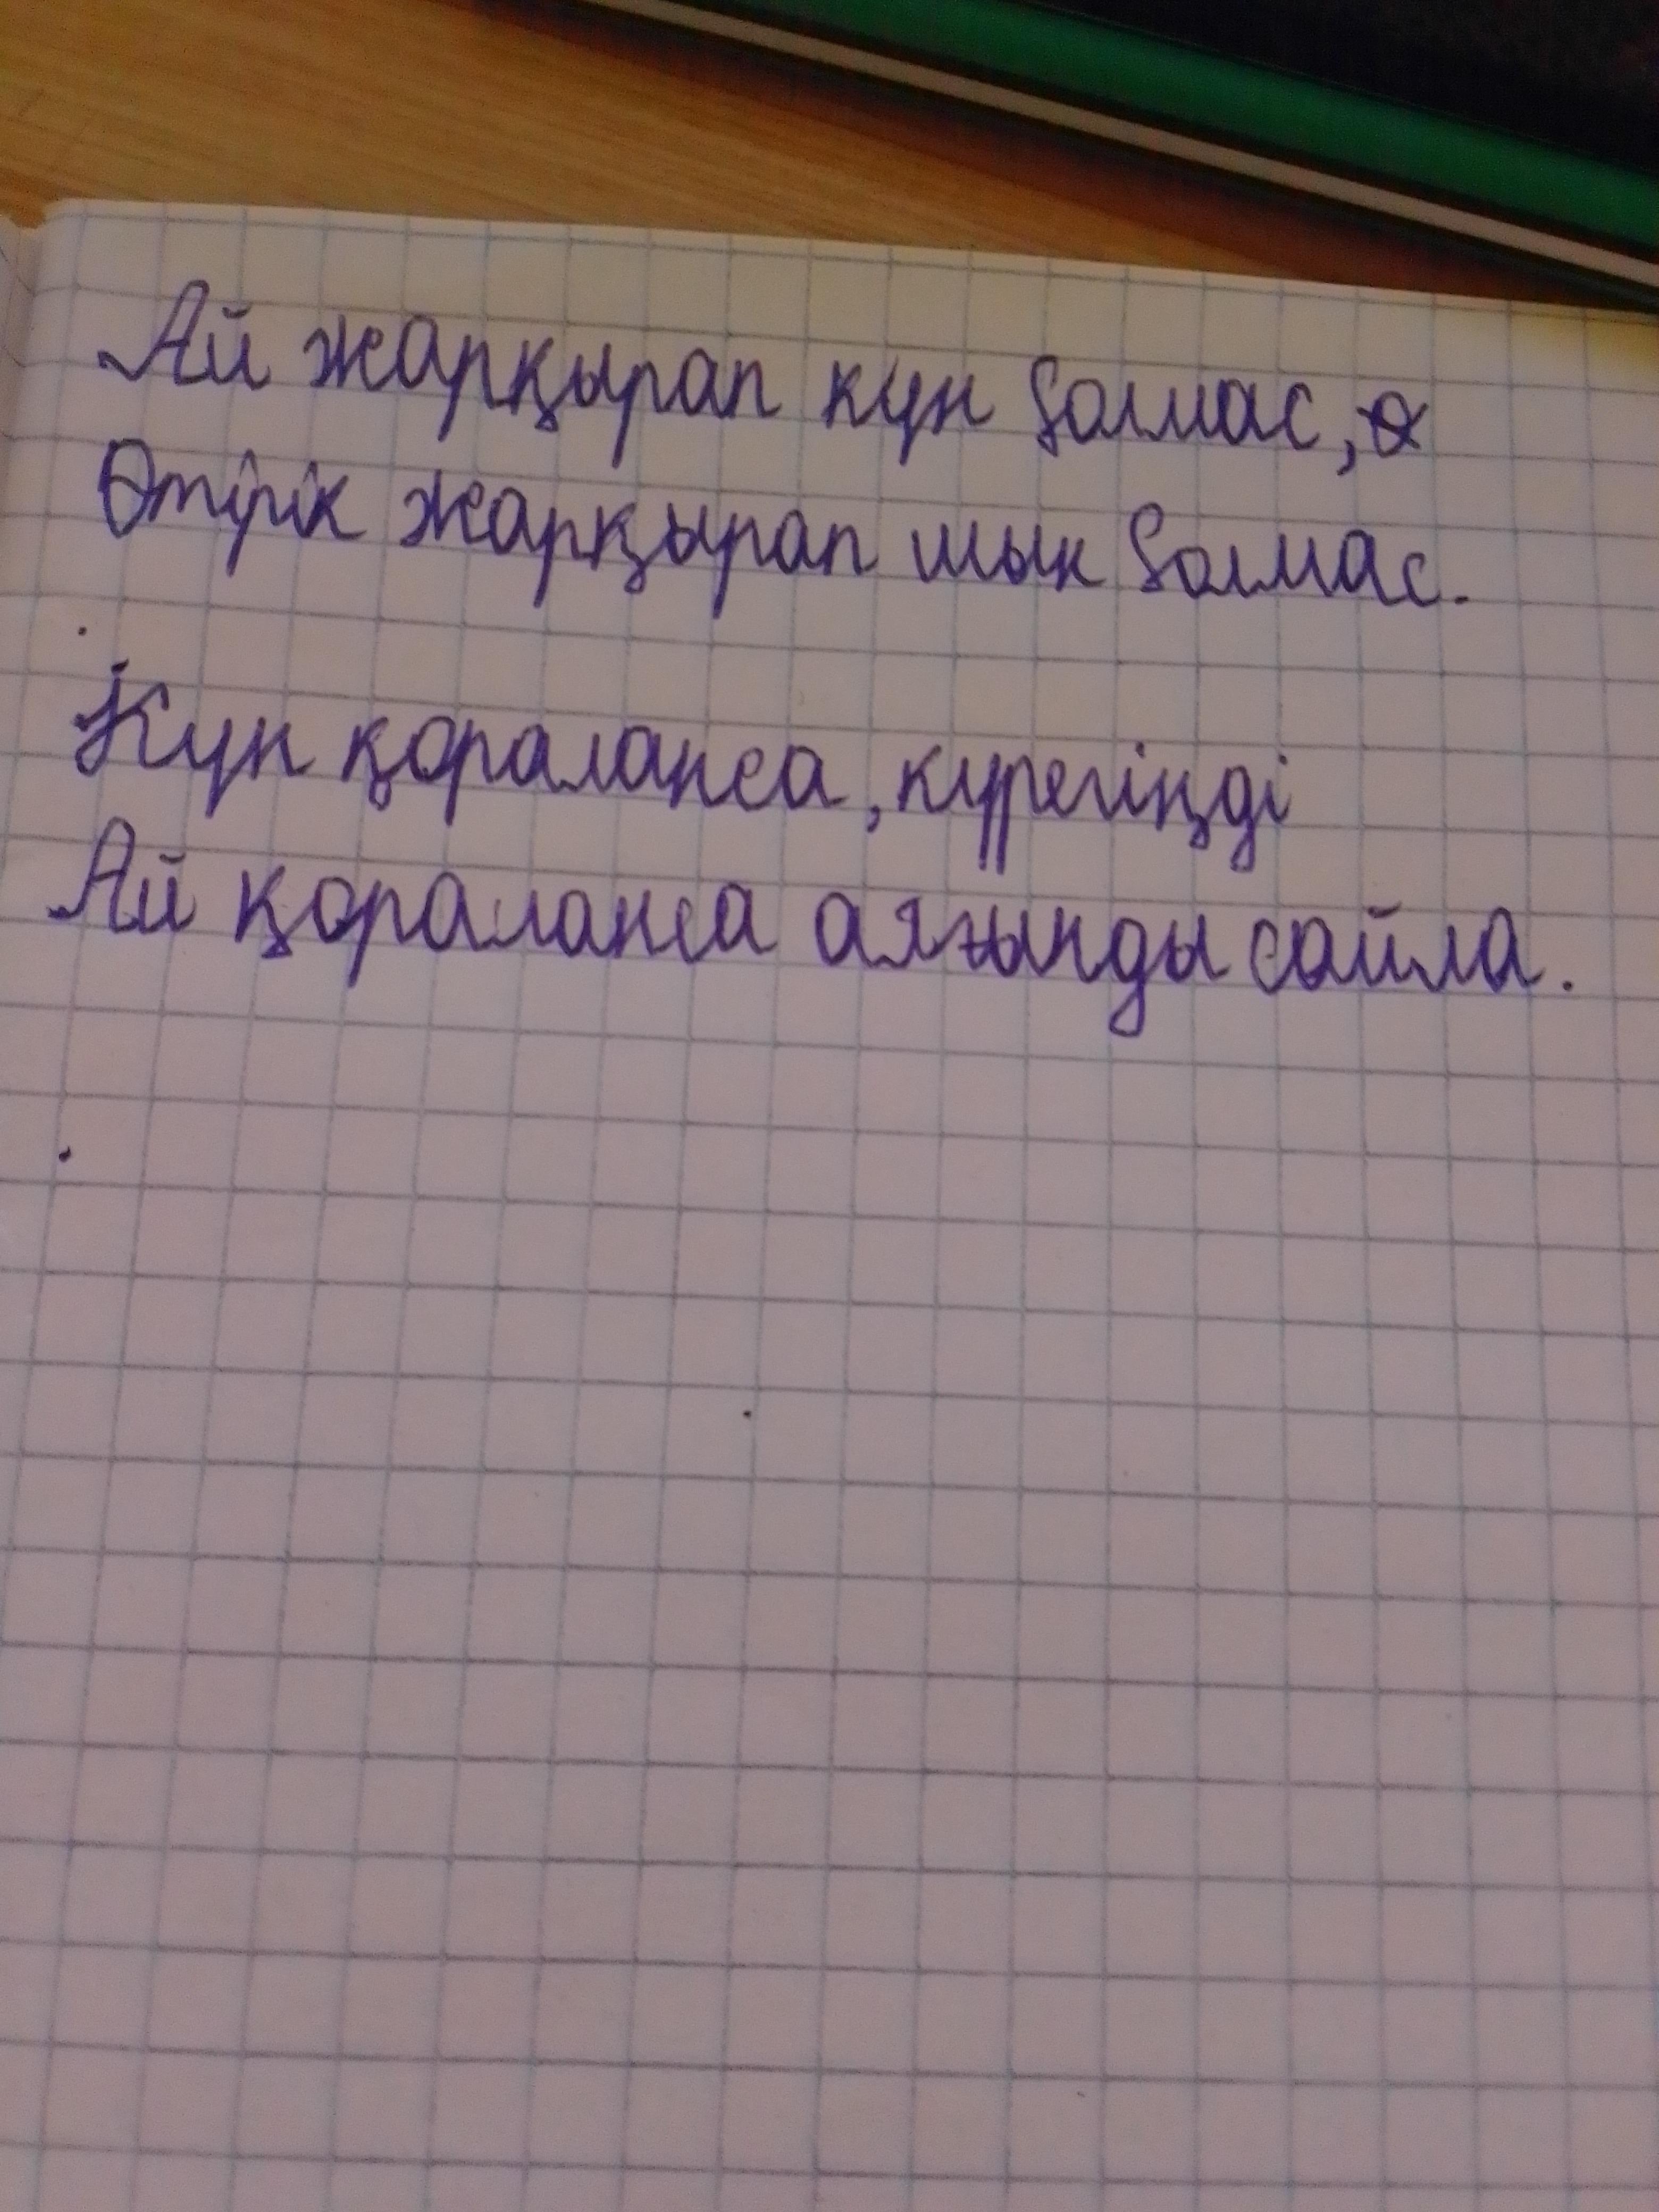 Ай жарқырап күн болмас,
Өтірік жарқырап шын болмас.
Күн қораланса, күрегіңді
Ай қораланса аяғынды сайла.